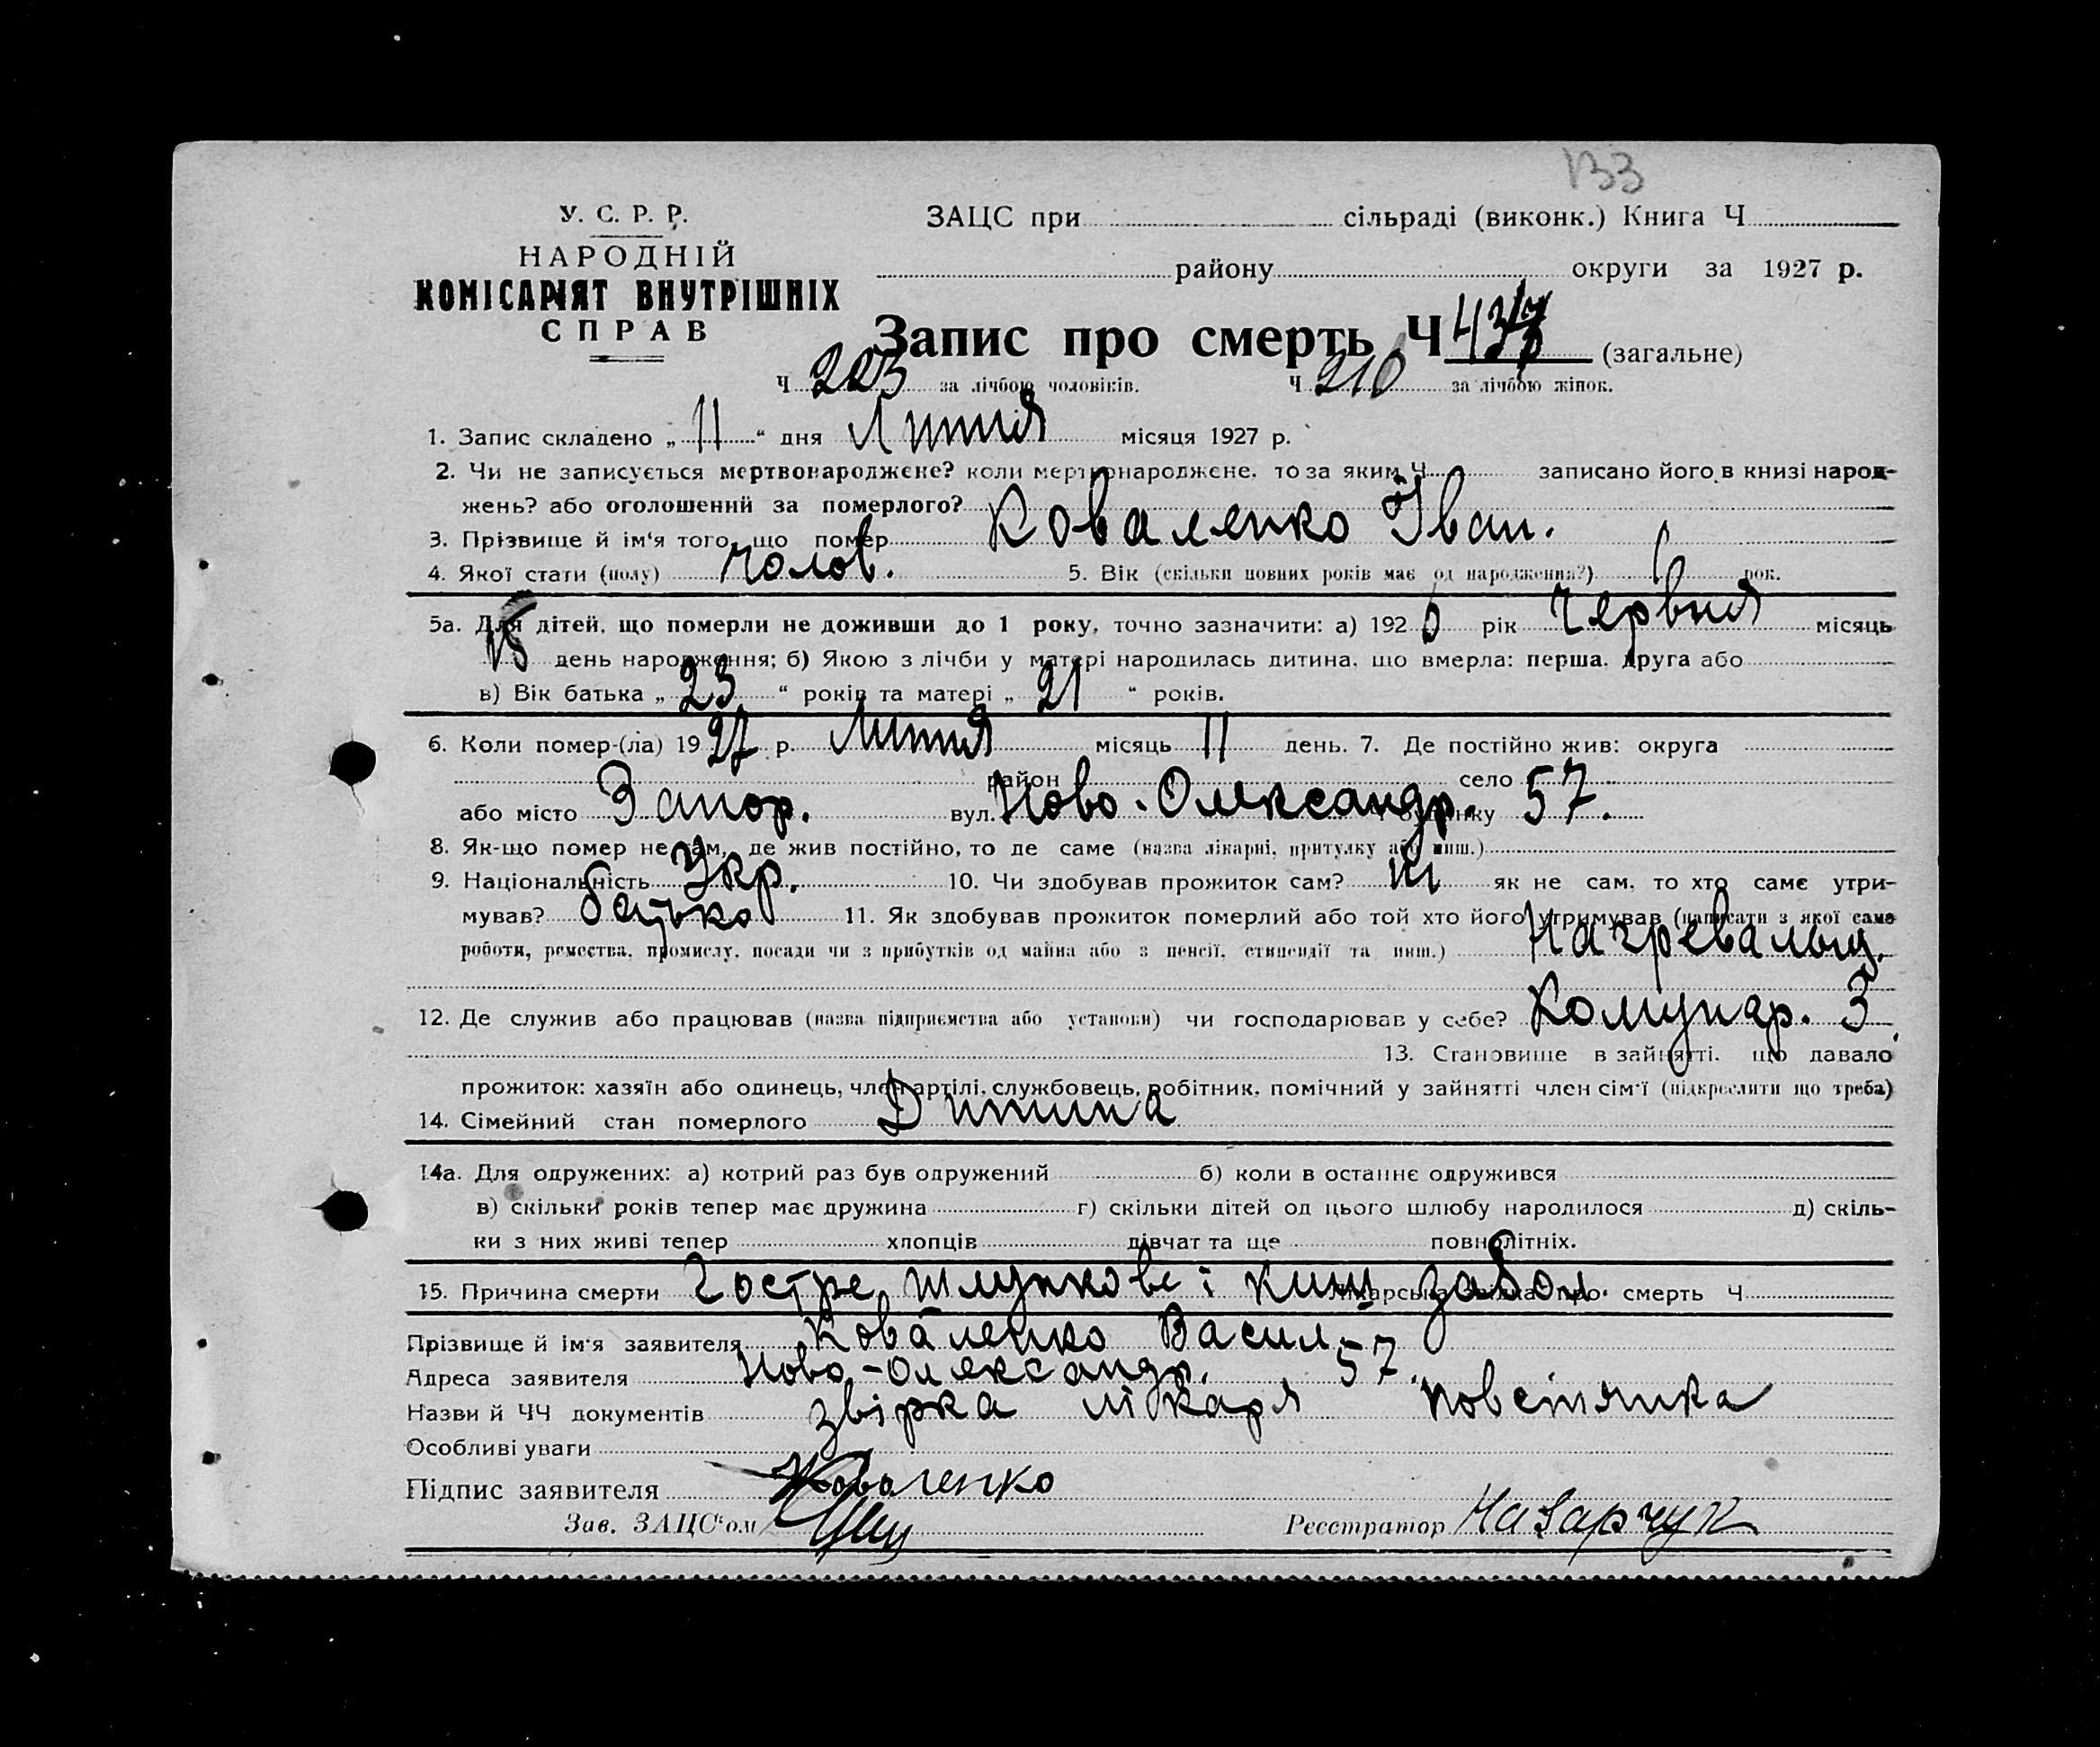 133
У. С. Р. Р.
НАРОДНІЙ
КОМІСАРІЯТ ВНУТРІШНІХ
СПРАВ
ЗАЦС при сільраді (виконк.) Книга Ч
району округи за 1927 р.
Запис про смерть Ч 437 (загальне)
Ч 223 за лічбою чоловіків. Ч 210 за лічбою жінок.
1. Запис складено „ 11 “ дня Липня місяця 1927 р.
2. Чи не записується мертвонароджене? коли мертвонароджене, то за яким Ч записано його в книзі народ-
жень? або оголошений за померлого?
3. Прізвище й ім'я того, що помер Коваленко Іван.
4. Якої стати (полу) чолов. 5. Вік (скільки повних років має од народження?) 1 рок.
5а. Для дітей, що померли не доживши до 1 року, точно зазначити: а) 192 6 рік Червня місяць
15 день народження; б) Якою з лічби у матері народилась дитина, що вмерла: перша, друга або
в) Вік батька „ 23 “ років та матері „ 21 “ років.
6. Коли помер-(ла) 19 27 р. Липня місяць 11 день. 7. Де постійно жив: округа
район село
або місто Запор. вул. Ново-Олександр. Ч будинку 57.
8. Як-що помер не там, де жив постійно, то де саме (назва лікарні, притулку або инш.)
9. Національність Укр. 10. Чи здобував прожиток сам? ні як не сам, то хто саме утри-
мував? батько 11. Як здобував прожиток померлий або той хто його утримував (написати з якої саме
роботи, ремества, промислу, посади чи з прибутків од майна або з пенсії, стипендії та инш.) Нагревальщ.
12. Де служив або працював (назва підприємства або установи) чи господарював у себе? Комунар. З
13. Становище в зайнятті, що давало
прожиток: хазяїн або одинець, член артілі, службовець, робітник, помічний у зайнятті член сім'ї (підкреслити що треба)
14. Сімейний стан померлого Дитина
14а. Для одружених: а) котрий раз був одружений б) коли в останнє одружився
в) скільки років тепер має дружина г) скільки дітей од цього шлюбу народилося д) скіль-
ки з них живі тепер хлопців дівчат та ще повнолітніх.
15. Причина смерти Гостре шлункове і киш забол. Лікарська звістка про смерть Ч
Прізвище й ім'я заявителя Коваленко Васил
Адреса заявителя Ново-Олександр. 57.
Назви й ЧЧ документів звірка лікаря
Особливі уваги
Підпис заявителя Коваленко
Зав. ЗАЦС'ом Реєстратор Назарчук